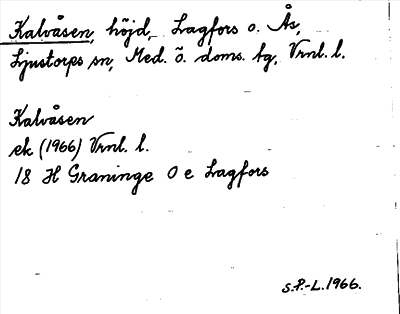 Kalvåsen, höjd, Lagfors o. Ås,
Ljustorps sn, Med. ö. doms. tg, Vrnl. l.
Kalvåsen
ek (1966) Vrnl. l.
18 H Graninge O e Lagfors
S.P.-L. 1966.